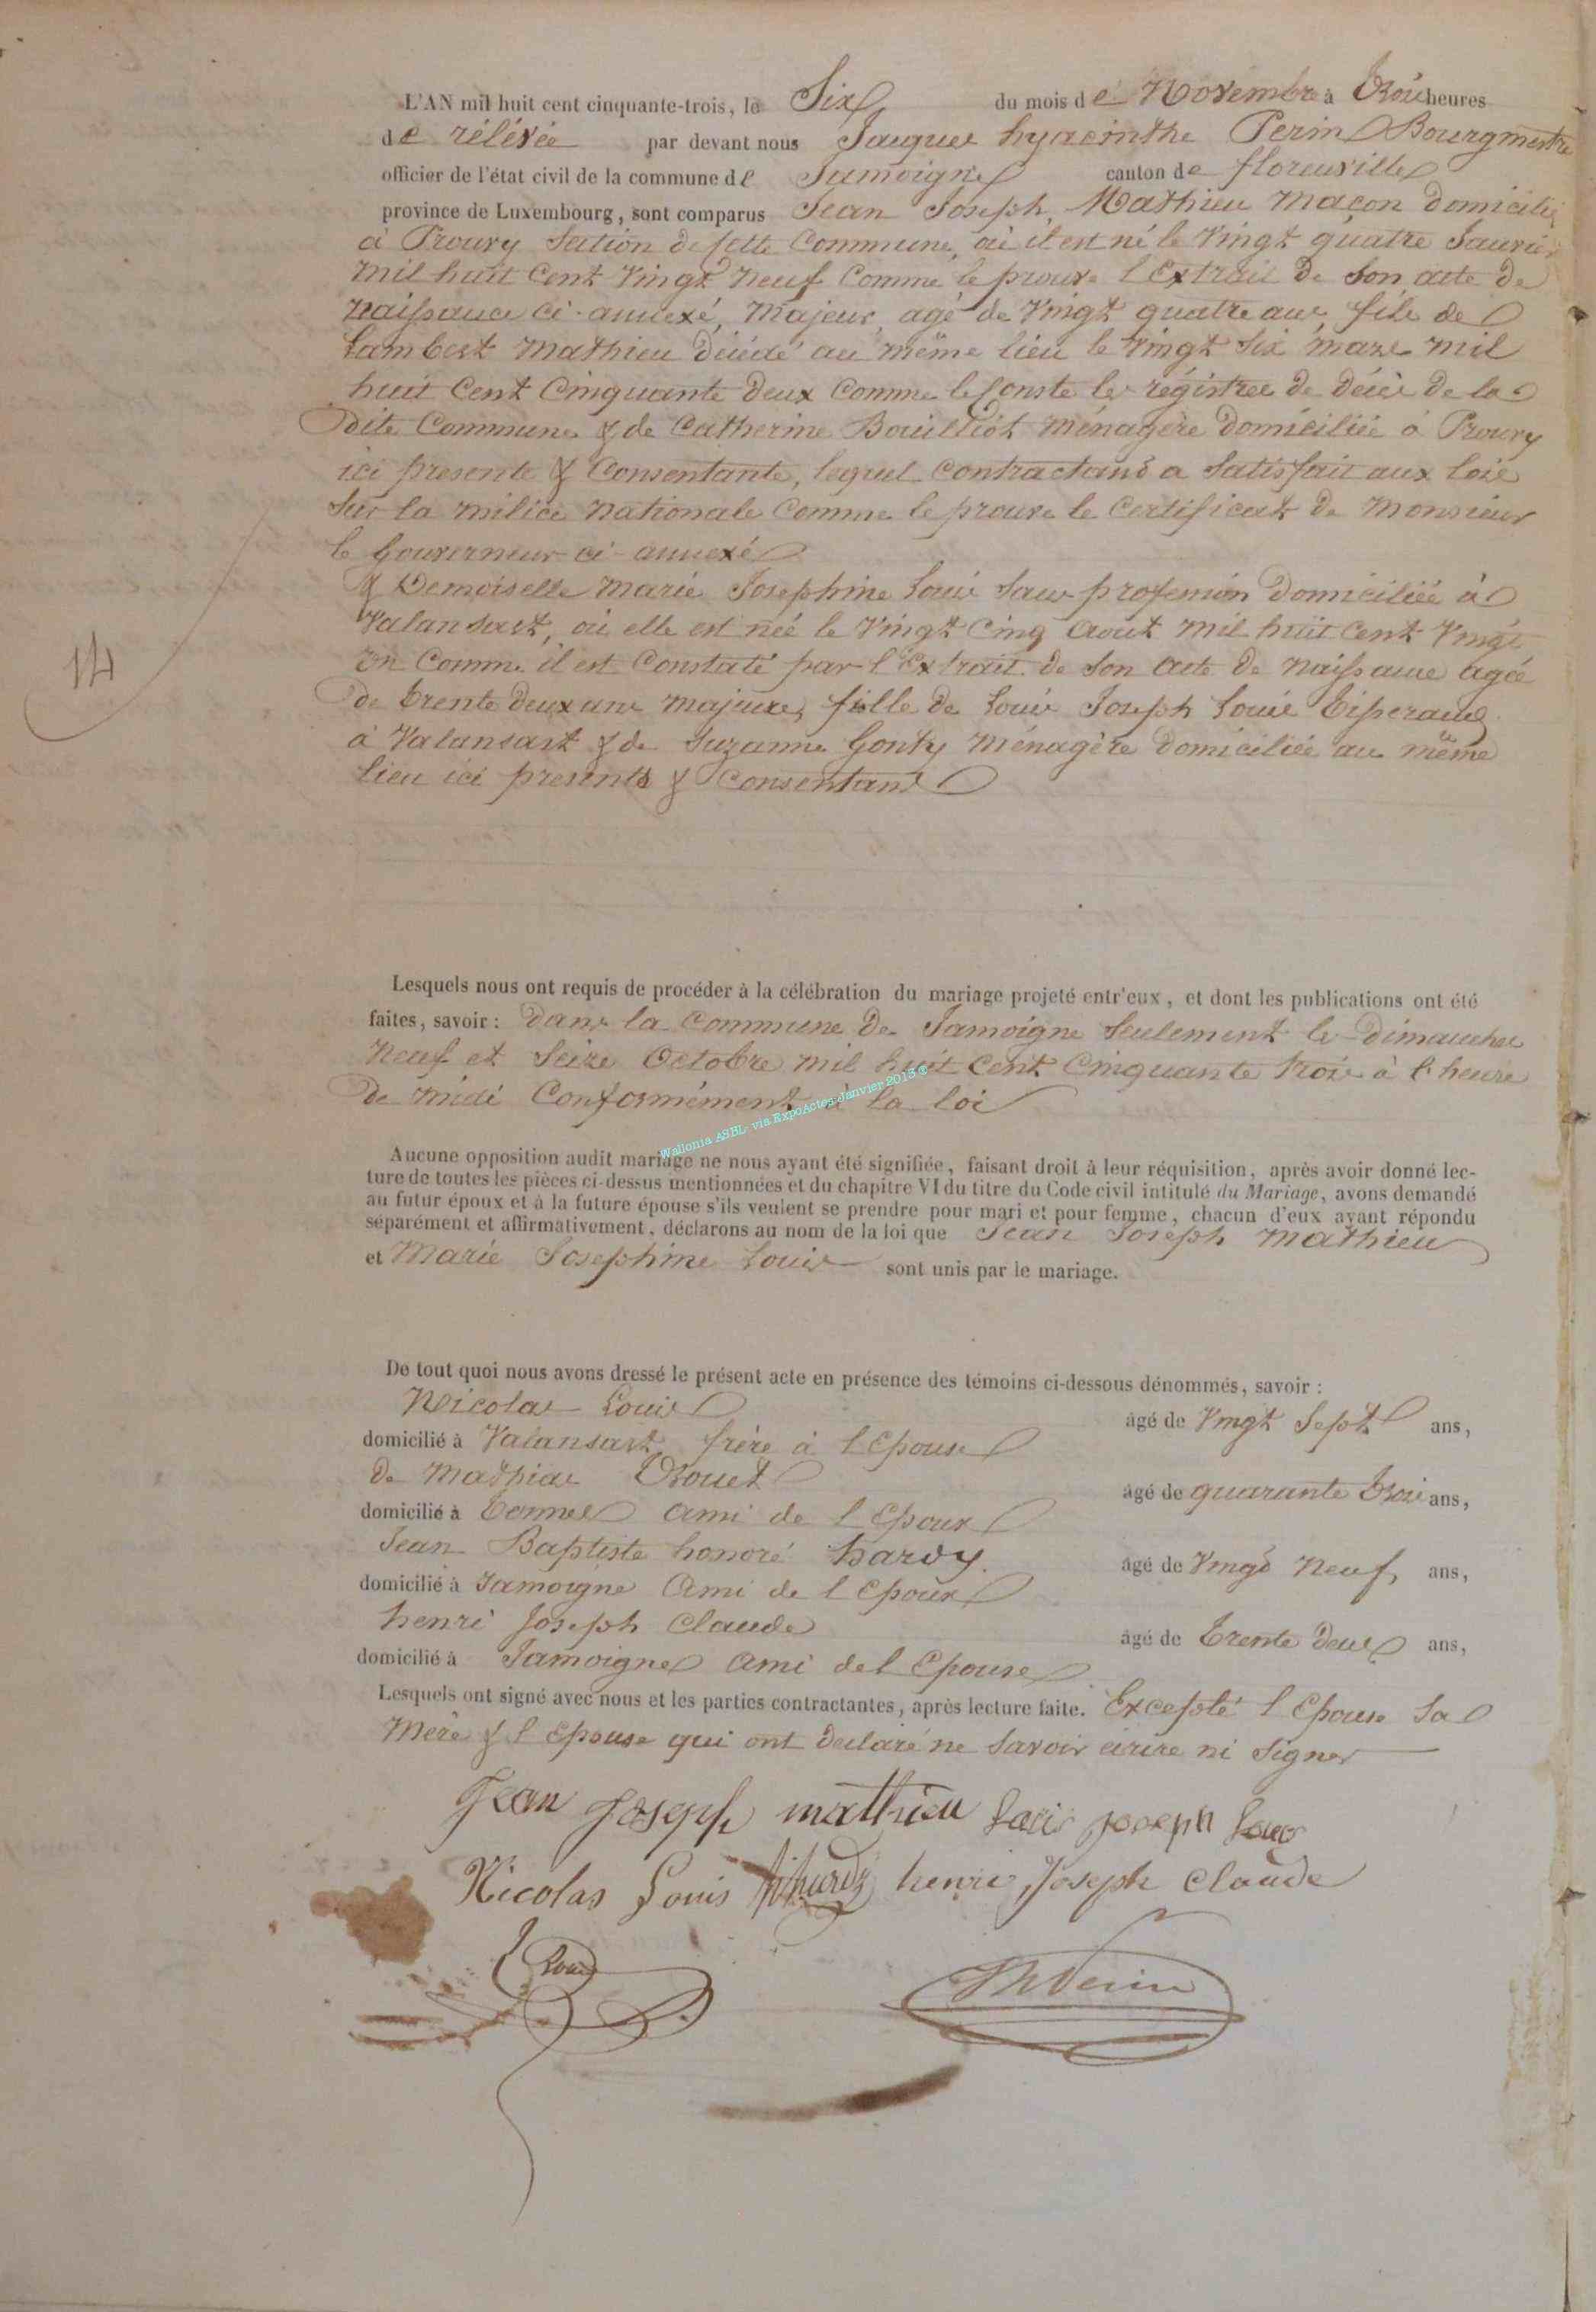 L'AN mil huit cent cinquante-trois, le Six du mois de Novembre à Trois heures
de rélévée par devant nous Jacques hyacinthe Perin Bourgmestre
officier de l'état civil de la commune de Jamoigne canton de florenville
province de Luxembourg, sont comparus Jean Joseph Mathieu Maçon Domicilié
à Prouvy Section de Cette Commune, où il est né le Vingt quatre Janvier
mil huit Cent Vingt neuf Comme le prouve l'Extrait de Son acte de
naissance ci-annexé, Majeur, agé de Vingt quatre ans, fils de
Lambert Mathieu Décédé au même lieu le Vingt Six mars mil
huit Cent Cinquante Deux Comme le Conste les régistres de Décès de la
Dite Commune & de Catherine ménagère Domiciliée à Prouvy
ici presente & Consentante, lequel Contractant a Satisfait aux lois
Sur la milice nationale Comme le prouve le Certificat de Monsieur
le Gouverneur ci-annexé
& Demoiselle Marie Josephine Louis Sans profession Domiciliée à
Valansart, où elle est née le Vingt Cinq Aout mil huit Cent Vingt
un Comme il est Constaté par l'Extrait de Son Acte de naissance agée
De trente Deux ans majeure, fille de Louis Joseph Louis Tisserand
à Valansart & de Suzanne Gonty Ménagère Domiciliée au même
lieu ici presents & Consentans
14
Lesquels nous ont requis de procéder à la célébration du mariage projeté entr'eux, et dont les publications ont été
faites, savoir : Dans la Commune De Jamoigne Seulement les Dimanches
Neuf et Seize Octobre mil huit Cent Cinquante Trois à l'heure
De midi Conformément à la loi
Wallonia ASBL via ExpoActes Janvier 2013 ®
Aucune opposition audit mariage ne nous ayant été signifiée, faisant droit à leur réquisition, après avoir donné lec-
ture de toutes les pièces ci-dessus mentionnées et du chapitre VI du titre du Code civil intitulé du Mariage, avons demandé
au futur époux et à la future épouse s'ils veulent se prendre pour mari et pour femme, chacun d'eux ayant répondu
séparément et affirmativement, déclarons au nom de la loi que Jean Joseph Mathieu
et Marie Josephine Louis sont unis par le mariage.
De tout quoi nous avons dressé le présent acte en présence des témoins ci-dessous dénommés, savoir :
Nicolas Louis âgé de Vingt Sept ans,
domicilié à Valansart frère à l'Epouse
De Mathias Drouet âgé de quarante Trois ans,
domicilié à Ami de l'Epoux
Jean Baptiste honoré hardy. âgé de Vingt Neuf ans,
domicilié à Jamoigne Ami de l'Epoux
henri Joseph Claude âgé de Trente Deux ans,
domicilié à Jamoigne Ami de l'Epouse
Lesquels ont signé avec nous et les parties contractantes, après lecture faite. Excepté l'Epouse Sa
Mère & l'Epouse qui ont Declaré ne Savoir ecrire ni Signer
Jean Joseph mathieu Louis joseph Louis
Nicolas Louis hardy henri Joseph Claude
JhPerin